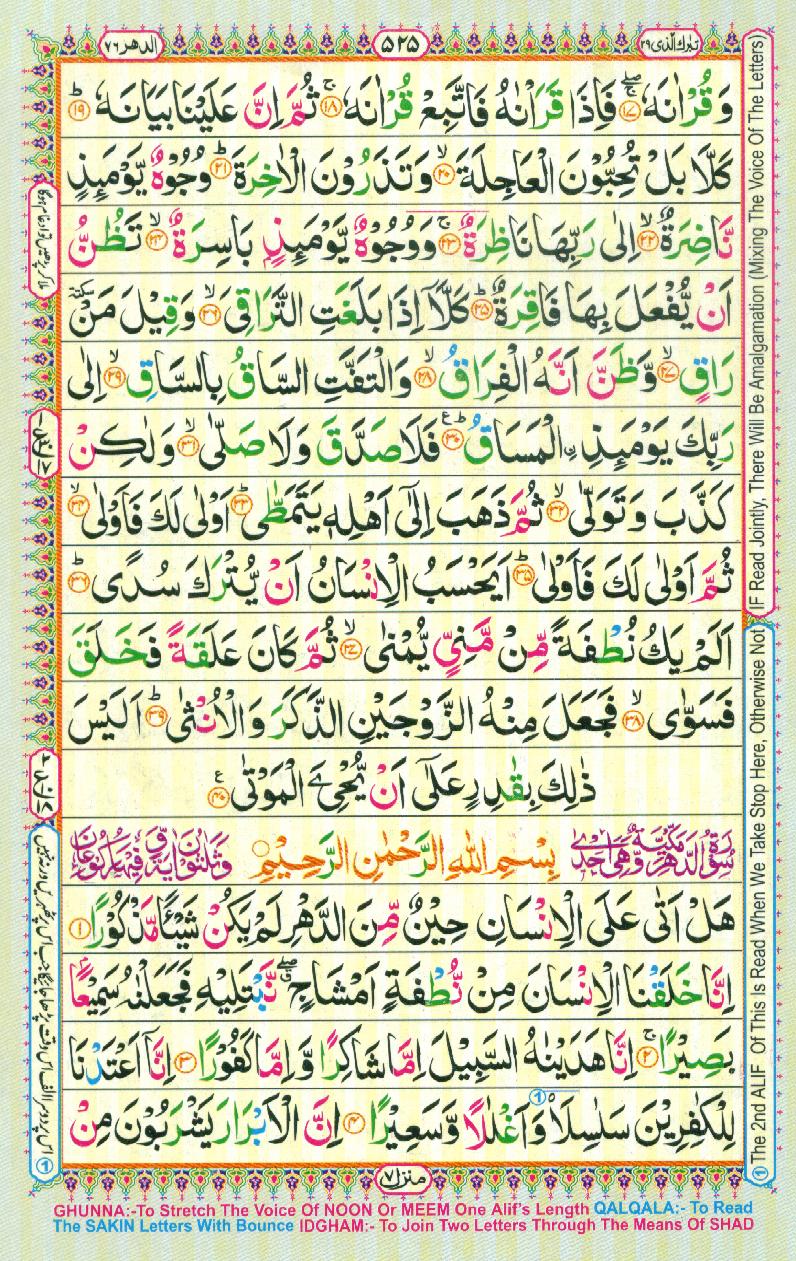 تبٰرك الّذی ۲۹
۵۲۵
الدھر ۷۶
وَقُرْاٰنَهٗ ۚۖ ﴿۱۷﴾ فَاِذَا قَرَاْنٰهُ فَاتَّبِعْ قُرْاٰنَهٗ ۚ ﴿۱۸﴾ ثُمَّ اِنَّ عَلَيْنَا بَيَانَهٗ ؕ ﴿۱۹﴾
كَلَّا بَلْ تُحِبُّوْنَ الْعَاجِلَةَ ۙ ﴿۲۰﴾ وَتَذَرُوْنَ الْاٰخِرَةَ ؕ ﴿۲۱﴾ وُجُوْهٌ يَّوْمَىِٕذٍ
نَّاضِرَةٌ ۙ ﴿۲۲﴾ اِلٰى رَبِّهَا نَاظِرَةٌ ۚ ﴿۲۳﴾ وَوُجُوْهٌ يَّوْمَىِٕذٍۭ بَاسِرَةٌ ۙ ﴿۲۴﴾ تَظُنُّ
اَنْ يُّفْعَلَ بِهَا فَاقِرَةٌ ؕ ﴿۲۵﴾ كَلَّاۤ اِذَا بَلَغَتِ التَّرَاقِیَ ۙ ﴿۲۶﴾ وَقِيْلَ مَنْ سكتة
رَاقٍ ۙ ﴿۲۷﴾ وَّظَنَّ اَنَّهُ الْفِرَاقُ ۙ ﴿۲۸﴾ وَالْتَفَّتِ السَّاقُ بِالسَّاقِ ۙ ﴿۲۹﴾ اِلٰى
رَبِّكَ يَوْمَىِٕذِ ࣙالْمَسَاقُ ؕ ع ﴿۳۰﴾ فَلَا صَدَّقَ وَلَا صَلّٰى ۙ ﴿۳۱﴾ وَلٰكِنْ
كَذَّبَ وَتَوَلّٰى ۙ ﴿۳۲﴾ ثُمَّ ذَهَبَ اِلٰۤى اَهْلِهٖ يَتَمَطّٰى ؕ ﴿۳۳﴾ اَوْلٰى لَكَ فَاَوْلٰى ۙ ﴿۳۴﴾
ثُمَّ اَوْلٰى لَكَ فَاَوْلٰى ؕ ﴿۳۵﴾ اَيَحْسَبُ الْاِنْسَانُ اَنْ يُّتْرَكَ سُدًى ؕ ﴿۳۶﴾
اَلَمْ يَكُ نُطْفَةً مِّنْ مَّنِیٍّ يُّمْنٰى ۙ ﴿۳۷﴾ ثُمَّ كَانَ عَلَقَةً فَخَلَقَ
فَسَوّٰى ۙ ﴿۳۸﴾ فَجَعَلَ مِنْهُ الزَّوْجَيْنِ الذَّكَرَ وَالْاُنْثٰى ؕ ﴿۳۹﴾ اَلَيْسَ
ذٰلِكَ بِقٰدِرٍ عَلٰۤى اَنْ يُّحْیِۦَ الْمَوْتٰى ع ﴿۴۰﴾
سُوْرَةُ الدَّهْرِ مَكِّيَّةٌ وَّهِیَ اِحْدٰى
بِسْمِ اللهِ الرَّحْمٰنِ الرَّحِيْمِ
وَثَلٰثُوْنَ اٰيَةً وَّفِيْهَا رُكُوْعَانِ
هَلْ اَتٰى عَلَى الْاِنْسَانِ حِيْنٌ مِّنَ الدَّهْرِ لَمْ يَكُنْ شَيْـًٔا مَّذْكُوْرًا ﴿۱﴾
اِنَّا خَلَقْنَا الْاِنْسَانَ مِنْ نُّطْفَةٍ اَمْشَاجٍ ۖۗ نَّبْتَلِيْهِ فَجَعَلْنٰهُ سَمِيْعًۢا
بَصِيْرًا ۚ ﴿۲﴾ اِنَّا هَدَيْنٰهُ السَّبِيْلَ اِمَّا شَاكِرًا وَّاِمَّا كَفُوْرًا ﴿۳﴾ اِنَّاۤ اَعْتَدْنَا
لِلْكٰفِرِيْنَ سَلٰسِلَا۟ وَاَغْلٰلًا وَّسَعِيْرًا ﴿۴﴾ اِنَّ الْاَبْرَارَ يَشْرَبُوْنَ مِنْ
منزل ۷
IF Read Jointly, There Will Be Amalgamation (Mixing The Voice Of The Letters)
① The 2nd ALIF Of This Is Read When We Take Stop Here, Otherwise Not
GHUNNA:-To Stretch The Voice Of NOON Or MEEM One Alif's Length QALQALA:- To Read
The SAKIN Letters With Bounce IDGHAM:- To Join Two Letters Through The Means Of SHAD